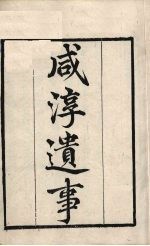 咸淳遺事